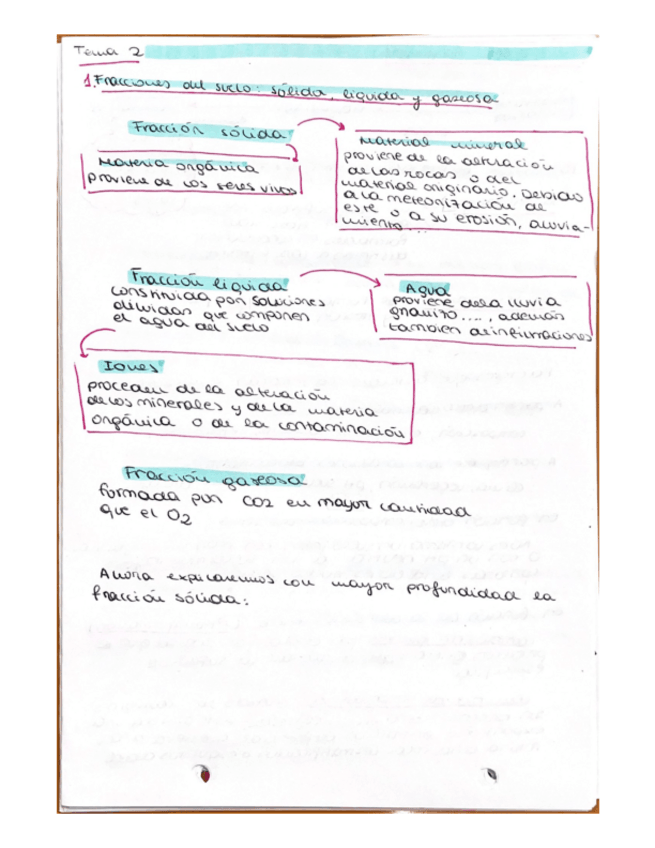 Tema 2
1. Fracciones del suelo: sólida, liquida y gaseosa
Fracción sólida
Materia orgánica
proviene de los seres vivos
Material mineral
proviene de la alteración
de las rocas o del
material originario. Debido
a la meteorización de
este o a su erosión, aluvia-
miento....
Fracción liquida
constituida por soluciones
diluidas que componen
el agua del suelo
Agua
proviene de la lluvia
granizo...., además
también de infiltraciones
Iones
proceden de la alteración
de los minerales y de la materia
orgánica o de la contaminación
Fracción gaseosa
formada por CO2 en mayor cantidad
que el O2
Ahora explicaremos con mayor profundidad la
fracción sólida: